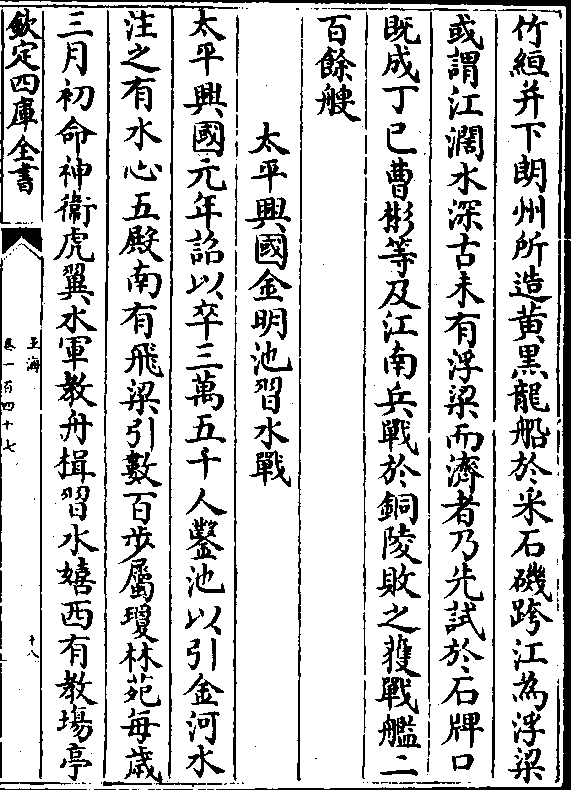 竹絙并下朗州所造黄黑龍船於米石磯跨江為浮梁
或謂江濶水深古未有浮梁而濟者乃先試於石牌口
既成丁巳曹彬等及江南兵戰於銅陵敗之獲戰艦二
百餘艘
太平興國金明池習水戰
太平興國元年詔以卒三萬五千人鑿池以引金河水
注之有水心五殿南有飛梁引數百步屬瓊林苑每歲
三月初命神衛虎翼水軍教舟楫習水嬉西有教場亭
欽定四庫全書
玉海
卷一百四十七
十八